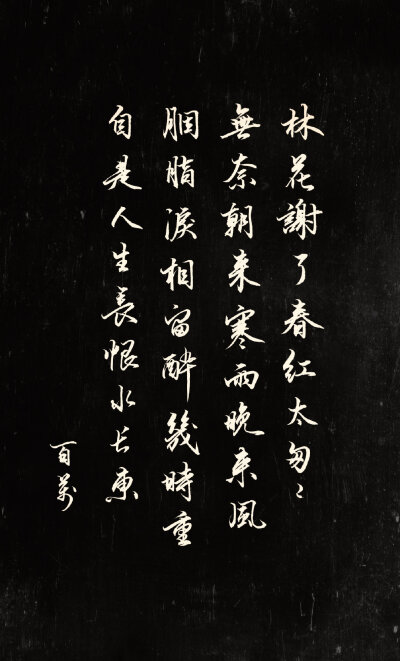 林花謝了春紅太匆〻
無奈朝来寒雨晚来風
胭脂淚相留醉幾時重
自是人生長恨水长東
百萬